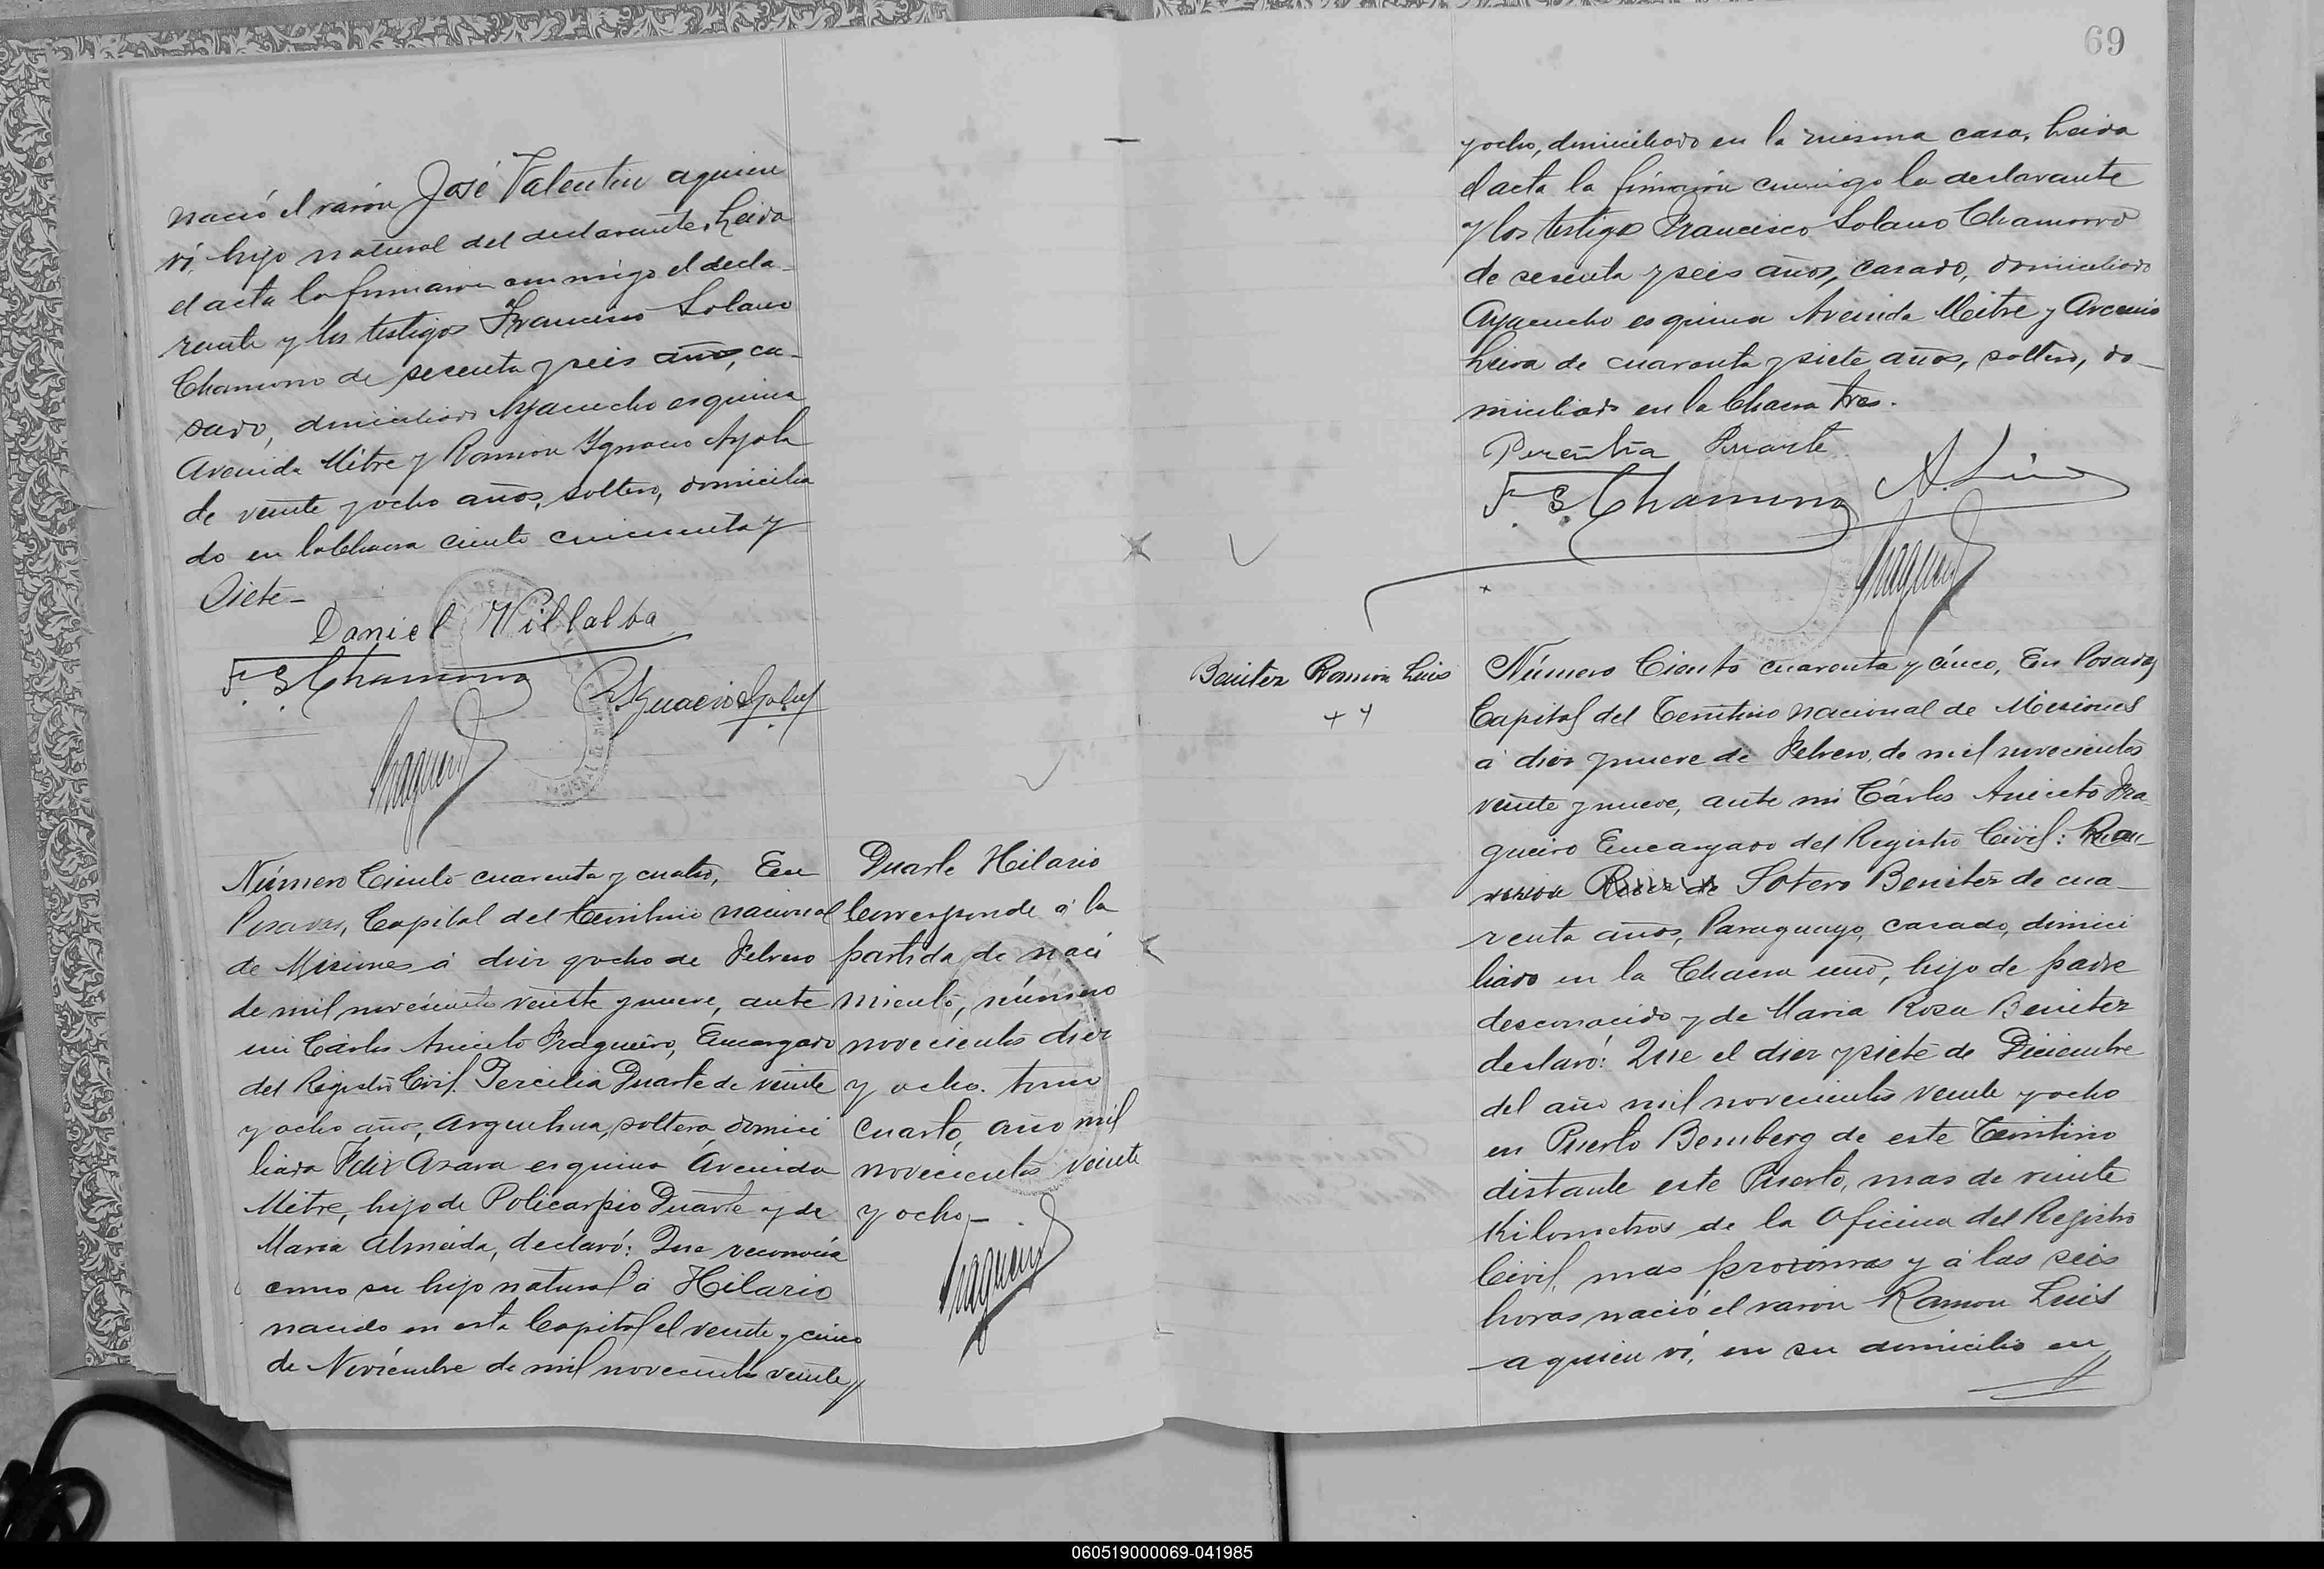 nació el varón José Valentin aquien
ví, hijo natural del declarante. Leida
el acta la firmaron conmigo el decla-
rante y los testigos Francisco Solano
Chamorro de sesenta y seis años, ca-
sado, domiciliado Ayacucho esquina
Avenida Mitre y Ramon Ygnacio Ayala
de veinte y ocho años, soltero, domicilia
do en la Chacra ciento cincuenta y
Siete-
Daniel Villalba
F. S. Chamorro
Número Ciento cuarenta y cuatro, En
Posadas, Capital del Territorio nacional
de Misiones á diez y ocho de Febrero
de mil novecientos veinte y nueve, ante
mi Cárlos Aniceto Fragueiro, Encargado
del Registro Civil. Percilia Duarte de veinte
y ocho años, argentina, soltera, domici
liada Felix Azara esquina Avenida
Mitre, hijo de Policarpio Duarte y de
Maria Almeida, declaró: Que reconocia
como su hijo natural á Hilario
nacido en esta Capital el veinte y cinco
de Noviembre de mil novecientos veinte
Duarte Hilario
Corresponde á la
partida de naci
miento, número
novecientos diez
y ocho. tomo
cuarto, año mil
novecientos veinte
y ocho,-
69
y ocho, domiciliado en la misma casa, Leida
el acta la firmaron conmigo la declarante
y los testigos Francisco Solano Chamorro
de sesenta y seis años, casado, domiciliado
Ayacucho esquina Avenida Mitre y Arcenio
Leiva de cuarenta y siete años, soltero, do-
miciliado en la Chacra tres.
Duarte
F. S. Chamorro
Benitez Ramon Luis
Número Ciento cuarenta y cinco, En Posadas,
Capital del Territorio nacional de Misiones
á diez y nueve de Febrero, de mil novecientos
veinte y nueve, ante mi Cárlos Aniceto Fra-
gueiro Encargado del Registro Civil:
Sotero Benitez de cua-
renta años, Paraguayo, casado, domici
liado en la Chacra uno, hijo de padre
desconocido y de Maria Rosa Benitez
declaró: Que el diez y siete de Diciembre
del año mil novecientos veinte y ocho
en Puerto Bemberg de este Territorio
distante este Puerto, mas de veinte
Kilometros de la Oficina del Registro
Civil, mas proximas y á las seis
horas nació el varón Ramon Luis
aquien ví, en su domicilio en
060519000069-041985